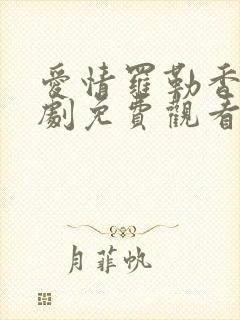 愛情羅勒香
劇免費觀看
月菲帆